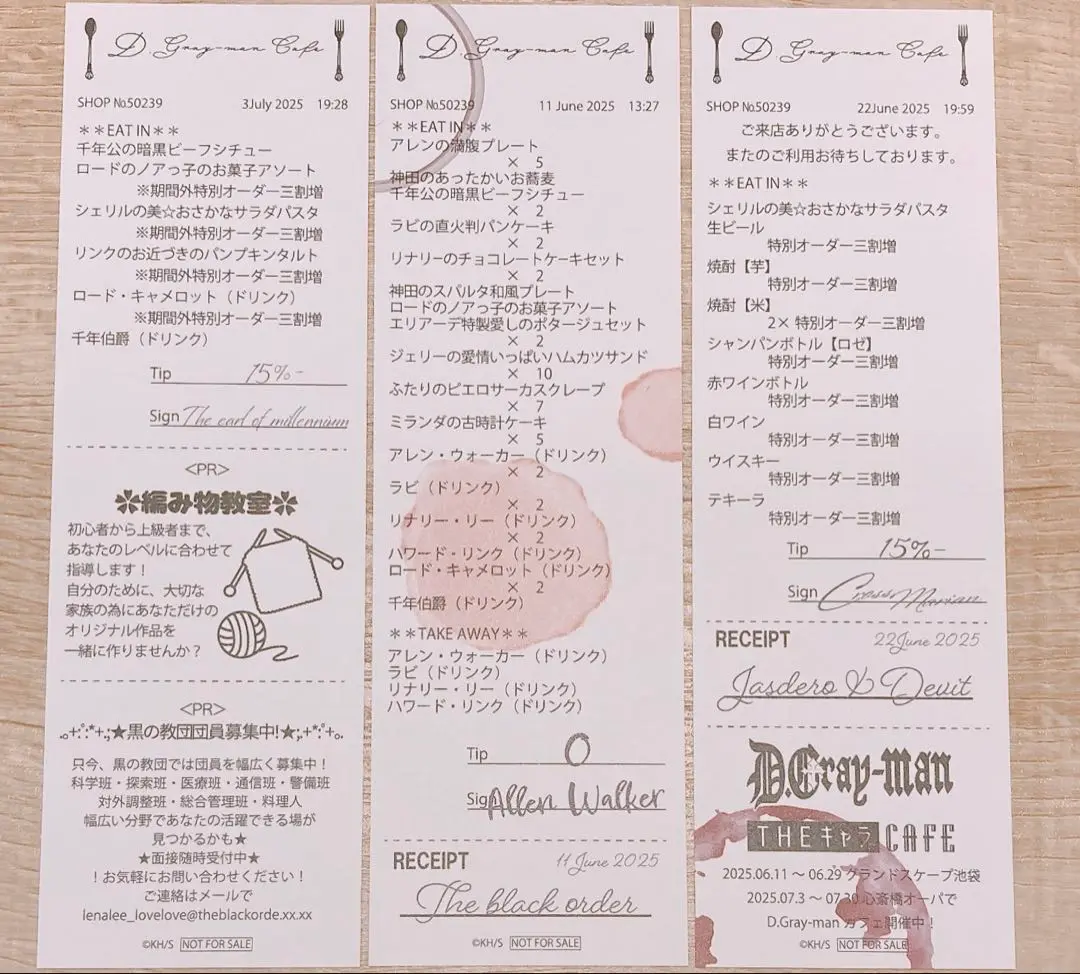 D.Gray-man Cafe
SHOP №50239 3July 2025 19:28
＊＊EAT IN＊＊
千年公の暗黒ビーフシチュー
ロードのノアっ子のお菓子アソート
※期間外特別オーダー三割増
シェリルの美☆おさかなサラダパスタ
※期間外特別オーダー三割増
リンクのお近づきのパンプキンタルト
※期間外特別オーダー三割増
ロード・キャメロット（ドリンク）
※期間外特別オーダー三割増
千年伯爵（ドリンク）
Tip 15%-
Sign The earl of millennium
<PR>
✽編み物教室✽
初心者から上級者まで、
あなたのレベルに合わせて
指導します！
自分のために、大切な
家族の為にあなただけの
オリジナル作品を
一緒に作りませんか？
<PR>
.｡+:ﾟ:*+.;★黒の教団団員募集中!★;.+*:ﾟ+｡.
只今、黒の教団では団員を幅広く募集中！
科学班・探索班・医療班・通信班・警備班
対外調整班・総合管理班・料理人
幅広い分野であなたの活躍できる場が
見つかるかも★
★面接随時受付中★
！お気軽にお問い合わせください！
ご連絡はメールで
lenalee_lovelove@theblackorde.xx.xx
©KH/S NOT FOR SALE
D.Gray-man Cafe
SHOP №50239 11 June 2025 13:27
＊＊EAT IN＊＊
アレンの満腹プレート
× 5
神田のあったかいお蕎麦
千年公の暗黒ビーフシチュー
× 2
ラビの直火判パンケーキ
× 2
リナリーのチョコレートケーキセット
× 2
神田のスパルタ和風プレート
ロードのノアっ子のお菓子アソート
エリアーデ特製愛しのポタージュセット
× 2
ジェリーの愛情いっぱいハムカツサンド
× 10
ふたりのピエロサーカスクレープ
× 7
ミランダの古時計ケーキ
× 5
アレン・ウォーカー（ドリンク）
× 2
ラビ（ドリンク）
× 2
リナリー・リー（ドリンク）
× 2
ハワード・リンク（ドリンク）
ロード・キャメロット（ドリンク）
× 2
千年伯爵（ドリンク）
＊＊TAKE AWAY＊＊
アレン・ウォーカー（ドリンク）
ラビ（ドリンク）
リナリー・リー（ドリンク）
ハワード・リンク（ドリンク）
Tip 0
Sign Allen Walker
RECEIPT 11 June 2025
The black order
©KH/S NOT FOR SALE
D.Gray-man Cafe
SHOP №50239 22June 2025 19:59
ご来店ありがとうございます。
またのご利用お待ちしております。
＊＊EAT IN＊＊
シェリルの美☆おさかなサラダパスタ
生ビール
特別オーダー三割増
焼酎【芋】
特別オーダー三割増
焼酎【米】
2× 特別オーダー三割増
シャンパンボトル【ロゼ】
特別オーダー三割増
赤ワインボトル
特別オーダー三割増
白ワイン
特別オーダー三割増
ウイスキー
特別オーダー三割増
テキーラ
特別オーダー三割増
Tip 15%-
Sign Cross Marian
RECEIPT 22June 2025
Jasdero & Devit
D.Gray-man
THEキャラCAFE
2025.06.11 ～ 06.29 グランドスケープ池袋
2025.07.3 ～ 07.30 心斎橋オーパで
D.Gray-man カフェ開催中！
©KH/S NOT FOR SALE